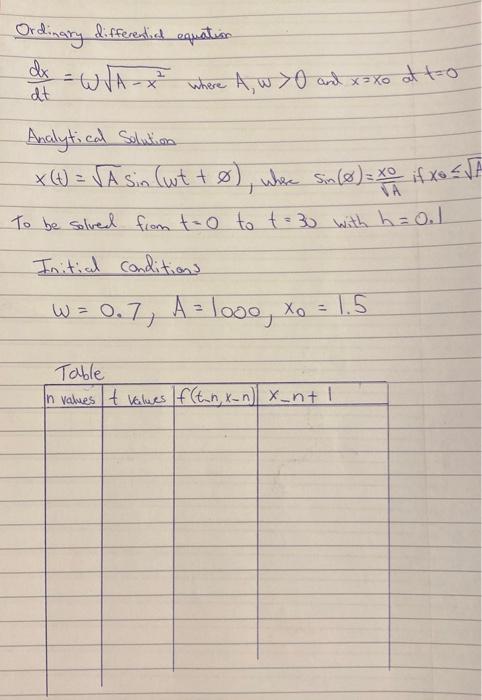 Ordinary differential equation
dx/dt = ω√A - x² where A, ω > 0 and x = x0 at t = 0
Analytical Solution
x(t) = √A sin(ωt + ø), where sin(ø) = x0/√A if x0 ≤ √A
To be solved from t = 0 to t = 30 with h = 0.1
Initial conditions
ω = 0.7, A = 1000, x0 = 1.5
Table
n values t values f(t_n, x_n) x_n+1